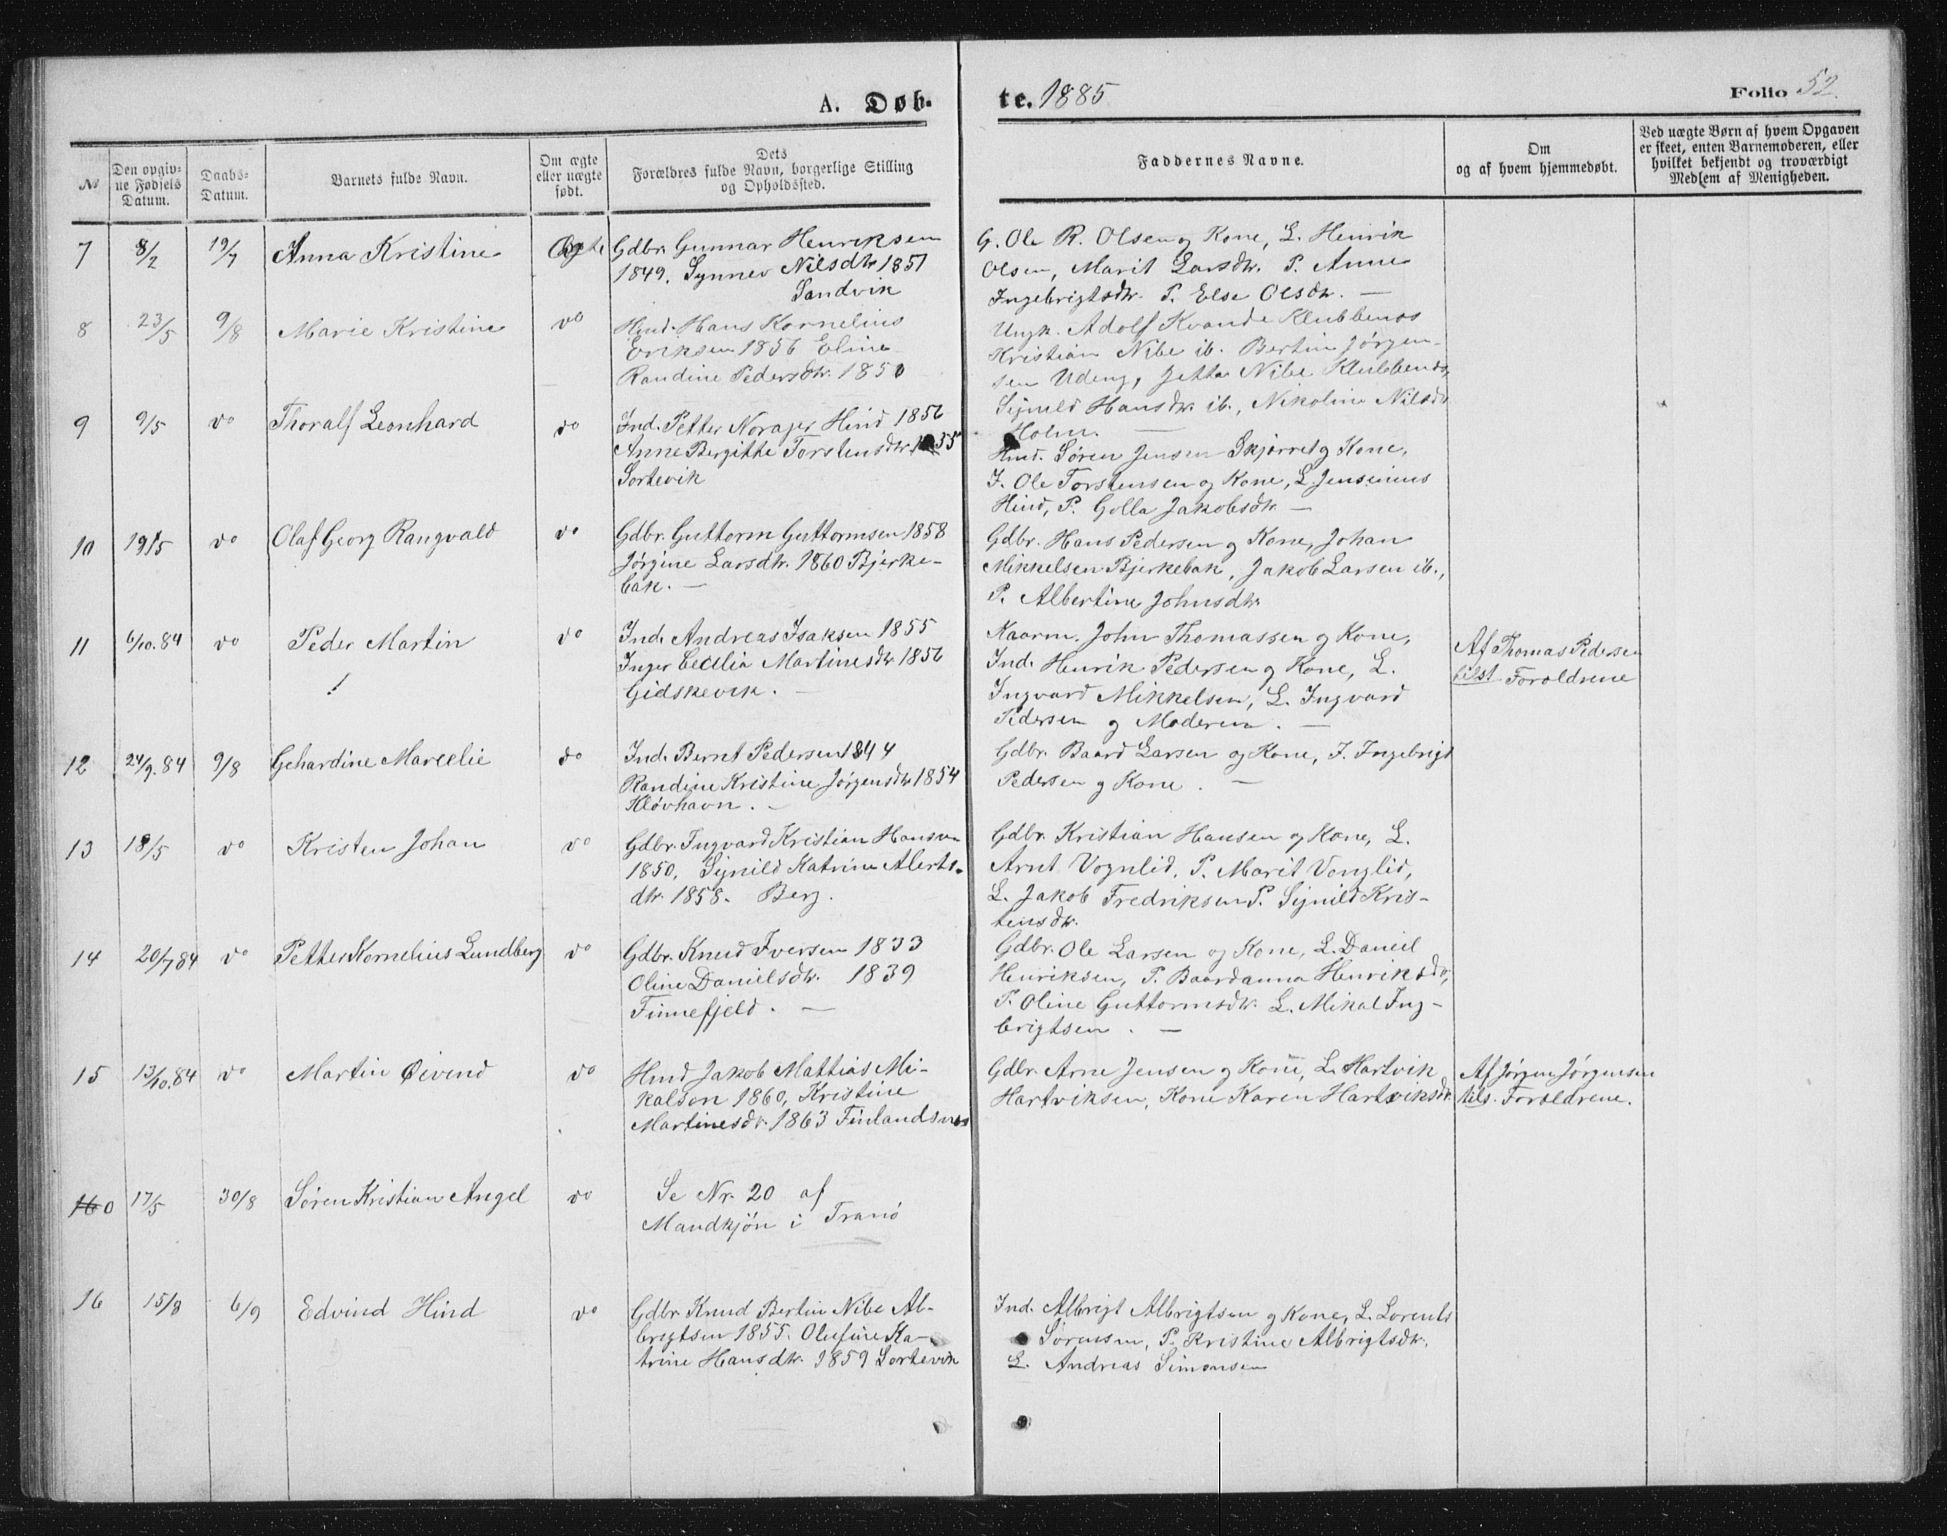 A. Døb-
te. 1885
Folio 52
№
Den opgiv-
ne Fødsels
Datum.
Daabs-
Datum.
Barnets fulde Navn.
Om ægte
eller uægte
født.
Dets
Forældres fulde Navn, borgerlige Stilling
og Opholdssted.
Faddernes Navne.
Om
og af hvem hjemmedøbt.
Ved uægte Børn af hvem Opgaven
er skeet, enten Barnemoderen, eller
hvilket bekjendt og troværdigt
Medlem af Menigheden.
7 8/2 19/7 Anna Kristine Ægte
Gdbr. Gunnar Henriksen
1849. Synnev Nilsdtr 1851
Sandvik
G. Ole R. Olsen og Kone, L. Henrik
Olsen, Marit Larsdtr. P. Anne
Ingebrigtsdtr. P. Else Olsdtr. —
8 23/5 9/8 Marie Kristine do
Hmd. Hans Kornelius
Eriksen 1856 Eline
Randine Pedersdtr. 1850
Ungk. Adolf Kvande Klubbenes
Kristian Nibe ib. Bertin Jørgen-
sen Udeng, Jetta Nibe Klubbenes,
Signild Hansdtr. ib., Nikoline Nilsdtr
Holm. —
9 9/5 do Thoralf Leonhard do
Ind. Petter Norager Hind 1856
Anne Bergitte Torstensdtr 1855
Sortevik
Hmd. Søren Jensen Skjærret og Kone,
I. Ole Torstensen og Kone, L. Jensenius
Hind, P. Golla Jakobsdtr. —
10 19/5 do Olaf Georg Rangvald do
Gdbr. Guttorm Guttormsen 1858
Jørgine Larsdtr. 1860 Bjerke-
bak. —
Gdbr. Hans Pedersen og Kone, Johan
Mikkelsen Bjerkebak, Jakob Larsen ib.,
P. Albertine Johnsdtr
11 6/10.84 do Peder Martin do
Ind. Andreas Isaksen 1855
Inger Cecilia Martinesdtr 1856
Gidskevik. —
Kaarm. John Thomassen og Kone,
Ind. Henrik Pedersen og Kone, L.
Ingvard Mikkelsen, L. Ingvard
Pedersen og Moderen. —
Af Thomas Pedersen
tilst. Forældrene
12 24/9.84 9/8 Gehardine Marcelie do
Ind. Bernt Pedersen 1844
Randine Kristine Jørgensdtr 1854
Kløvhavn. —
Gdbr. Baard Larsen og Kone, I. Ingebrigt
Pedersen og Kone. —
13 18/5 do Kristen Johan do
Gdbr. Ingvard Kristian Hansen
1850, Signild Katrine Alberts-
dtr. 1858. Berg.
Gdbr. Kristian Hansen og Kone, L.
Arnt Vognlid, P. Marit Vonglid,
L. Jakob Fredriksen P. Signild Kris-
tensdtr.
14 20/7 84 do Petter Kornelius Lundberg do
Gdbr. Knud Iversen 1833
Oline Danielsdtr. 1839
Finnefjeld. —
Gdbr. Ole Larsen og Kone, L. Daniel
Henriksen, P. Baardanna Henriksdtr,
P. Oline Guttormsdtr. L. Mikal Ing-
brigtsen. —
15 13/10.84 do Martin Øivind do
Hmd Jakob Mattias Mi-
kalson 1860, Kristine
Martinesdtr. 1863 Finlandsnes
Gdbr. Arne Jensen og Kone, L. Hartvik
Hartviksen, Kone Karen Hartviksdtr.
Af Jørgen Jørgensen
tils. Forældrene.
160 17/5 30/8 Søren Kristian Angel do
Se Nr. 20 af
Mandkjøn i Tranø
16 15/8 6/9 Edvind Hind do
Gdbr. Knud Bertin Nibe Al-
brigtsen 1855. Olufine Ka-
trine Hansdtr. 1859 Sortevik
Ind. Albrigt Albrigtsen og Kone, L. Lorents
Sørensen, P. Kristine Albrigtsdtr.
L. Andreas Simonsen